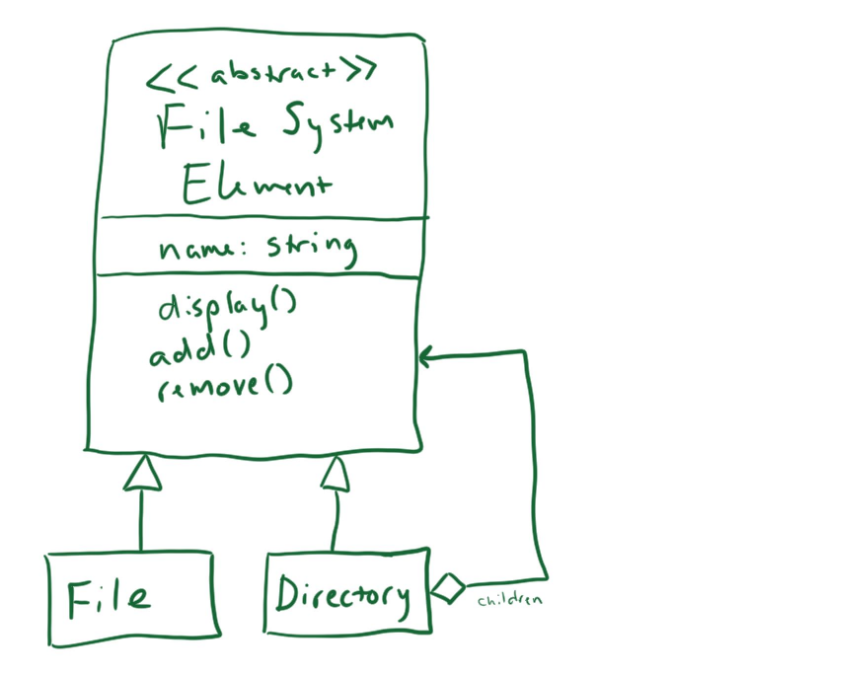 << abstract >>
File System
Element
name: string
display()
add()
remove()
File
Directory
children